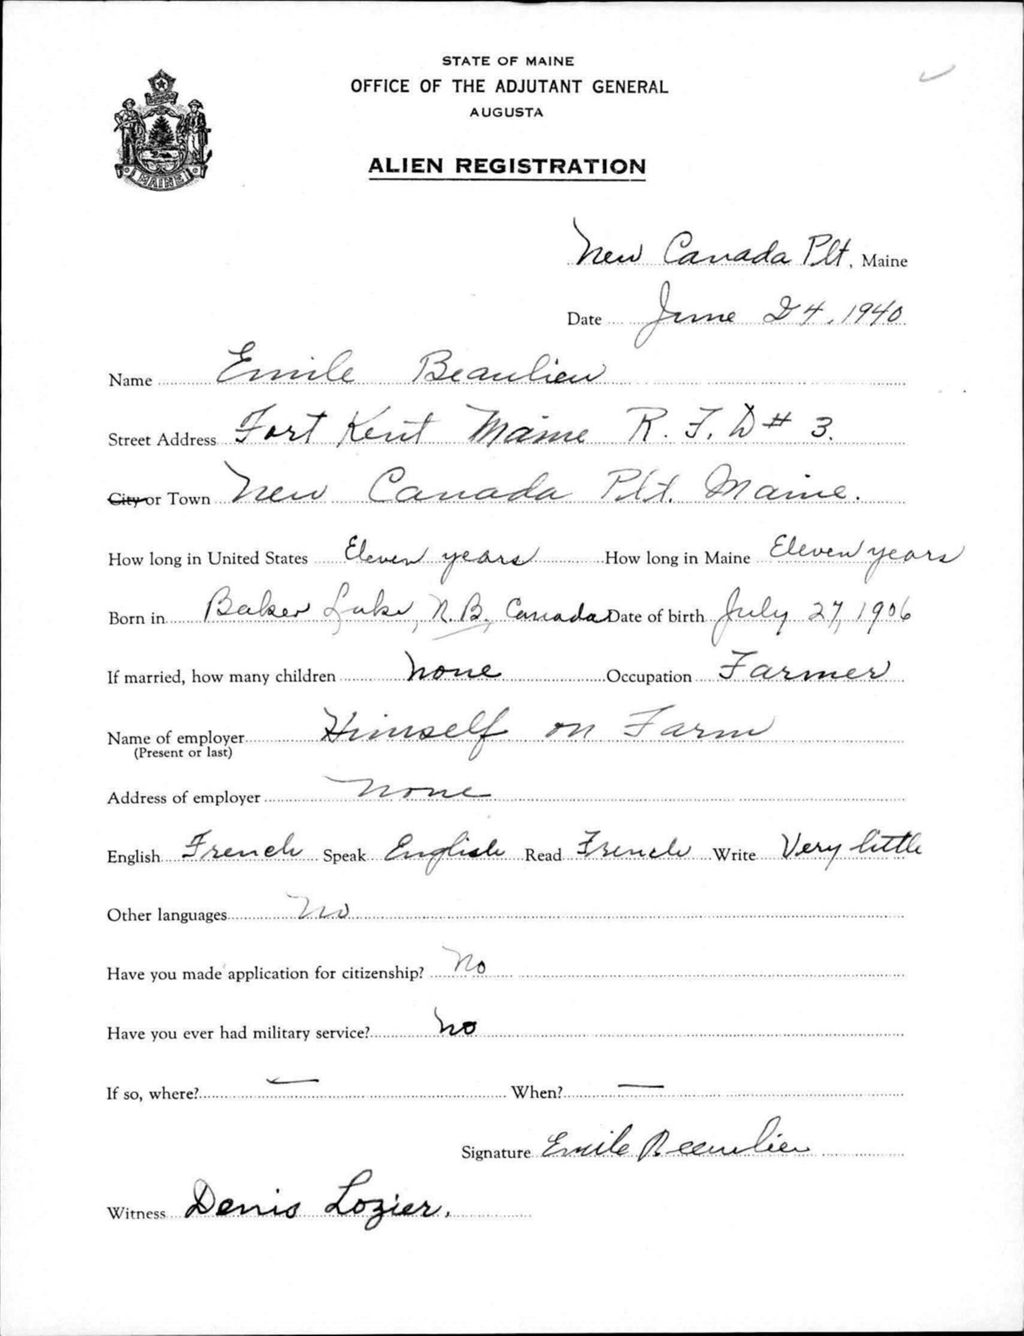 STATE OF MAINE
OFFICE OF THE ADJUTANT GENERAL
AUGUSTA
ALIEN REGISTRATION
MAINE
New Canada Plt, Maine
Date June 24, 1940
Name Emile Beaulieu
Street Address Fort Kent Maine R. F. D # 3.
City or Town New Canada Plt. Maine.
How long in United States Eleven years How long in Maine Eleven years
Born in Baker Lake, N.B., Canada Date of birth July 27, 1906
If married, how many children none Occupation Farmer
Name of employer Himself on Farm
(Present or last)
Address of employer none
English French Speak English Read French Write Very little
Other languages No
Have you made application for citizenship? No
Have you ever had military service? no
If so, where? — When? —
Signature Emile Beaulieu
Witness Denis Lozier.